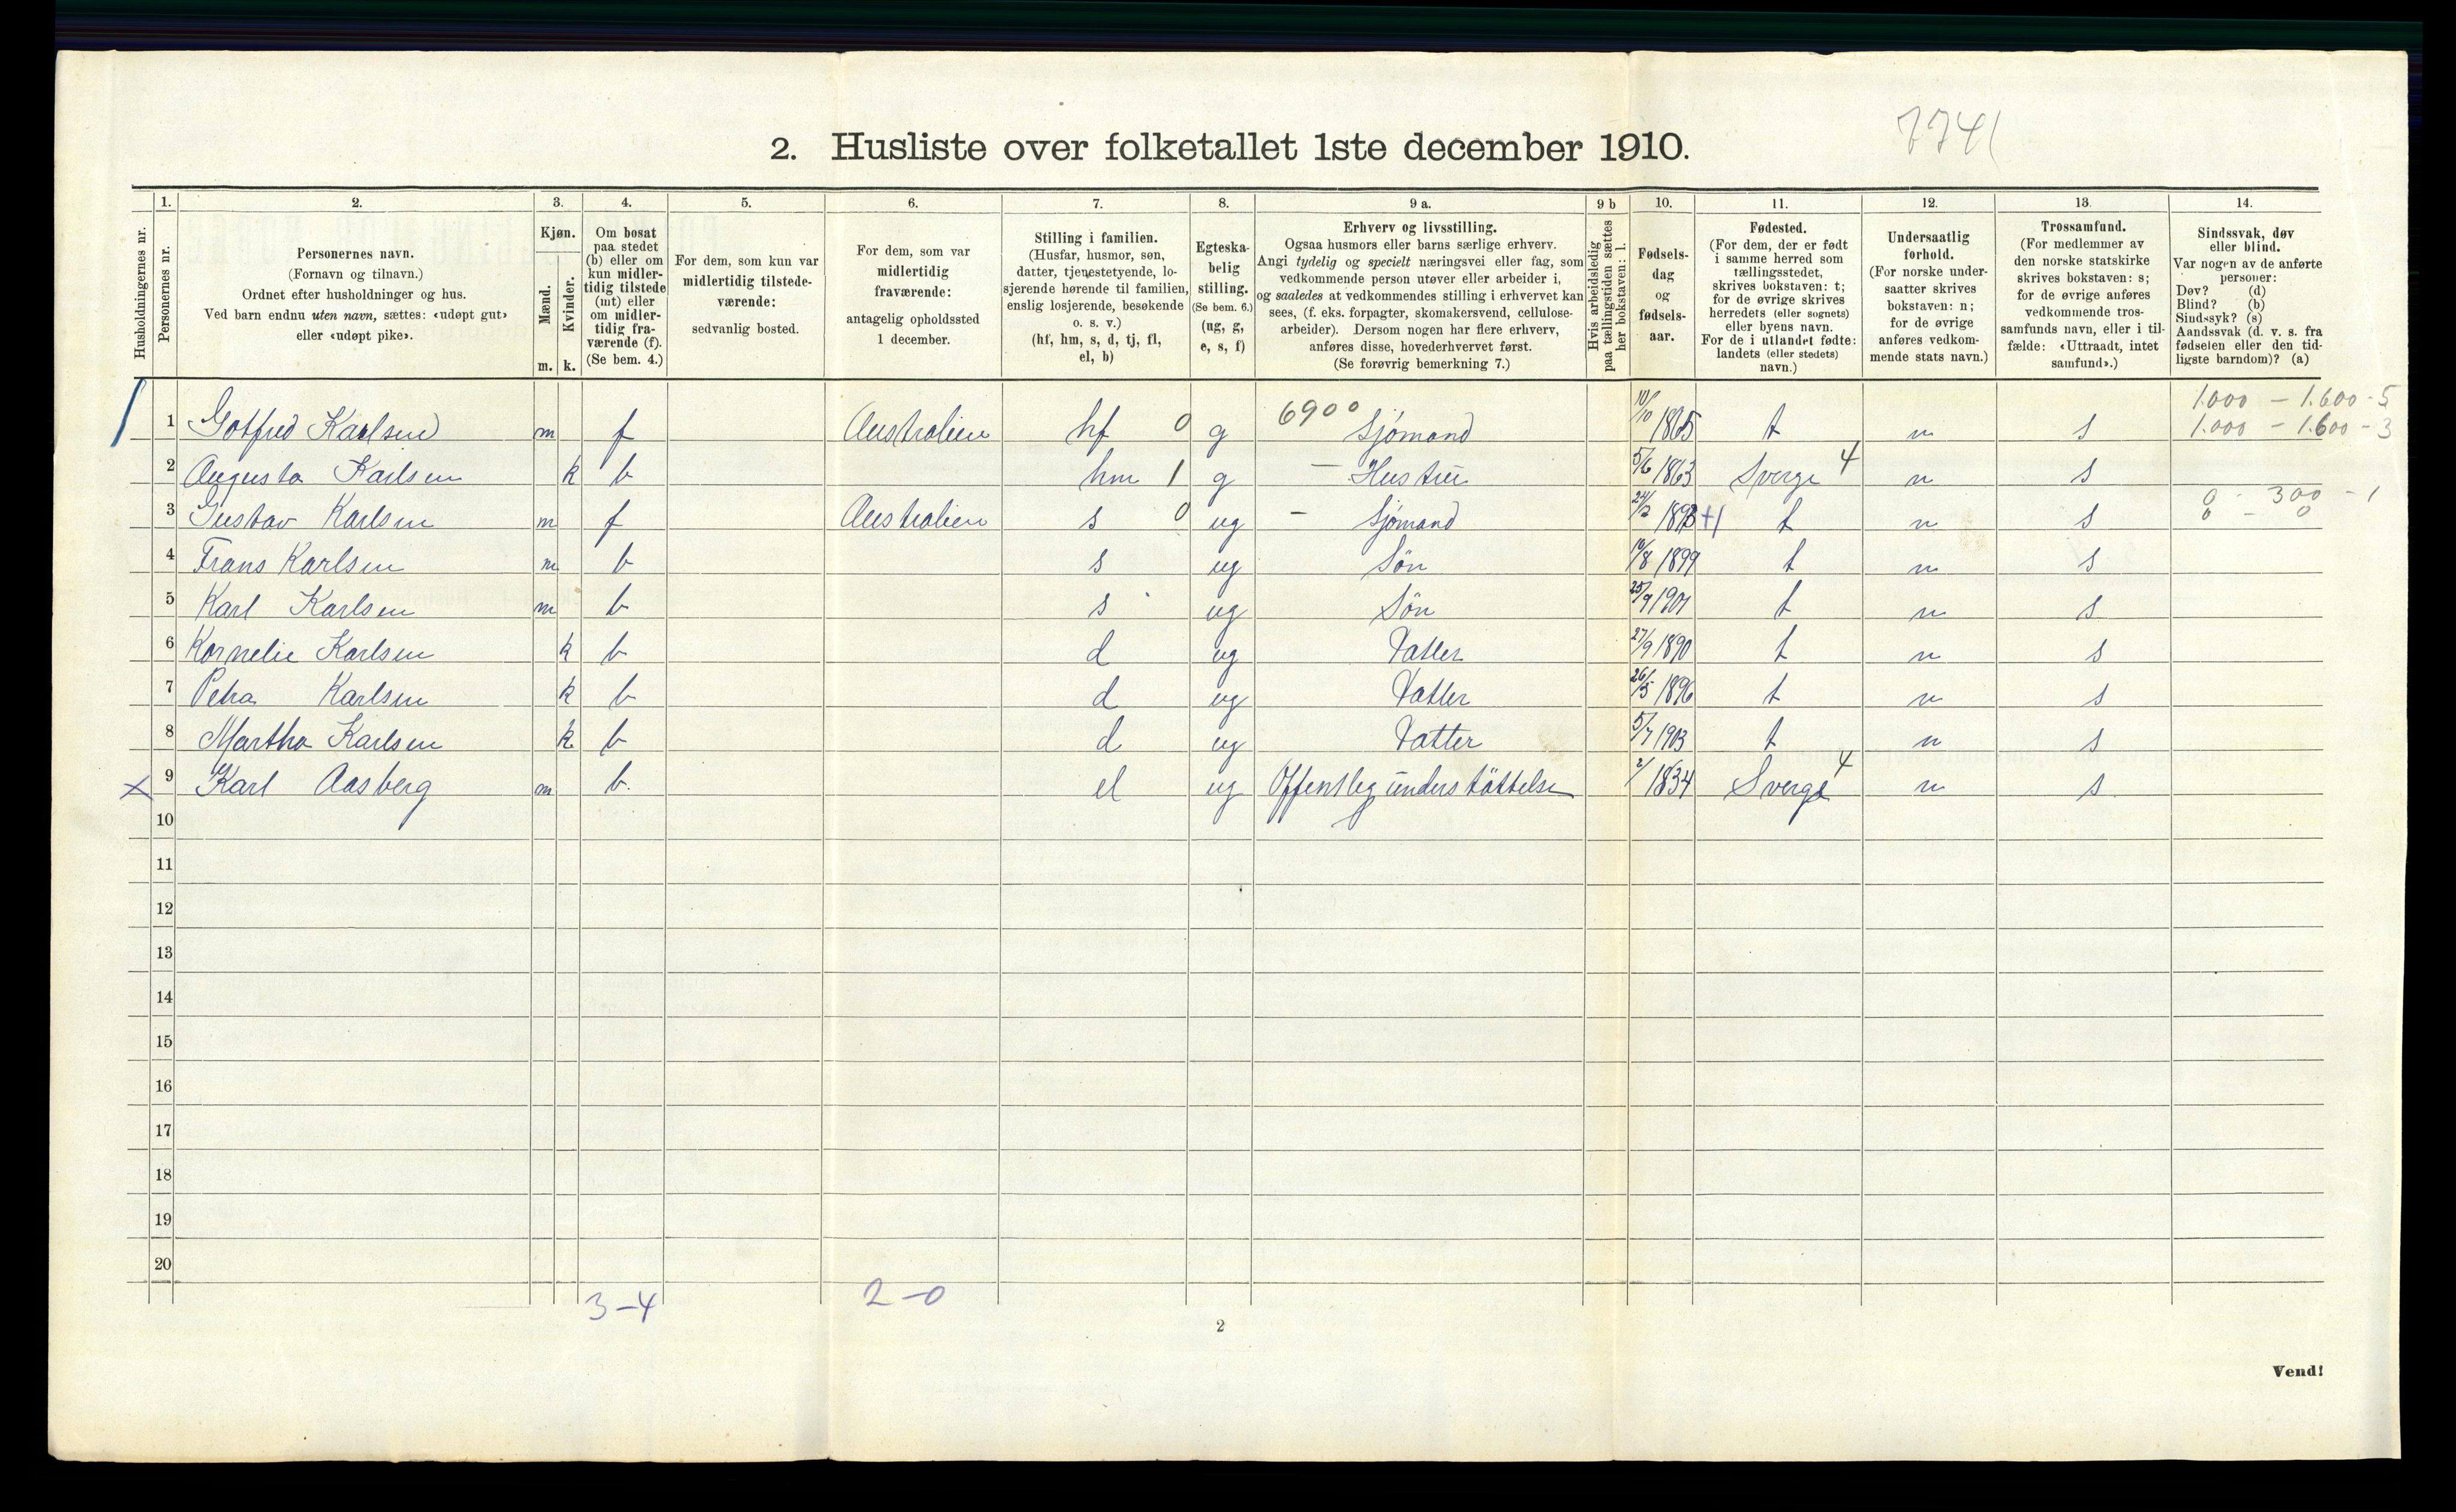 7741
2. Husliste over folketallet 1ste december 1910.
Husholdningernes nr.
1. Personernes nr.
2. Personernes navn. (Fornavn og tilnavn.) Ordnet efter husholdninger og hus. Ved barn endnu uten navn, sættes: «udøpt gut» eller «udøpt pike».
3. Kjøn. Mænd. m. Kvinder. k.
4. Om bosat paa stedet (b) eller om kun midlertidig tilstede (mt) eller om midlertidig fraværende (f). (Se bem. 4.)
5. For dem, som kun var midlertidig tilstedeværende: sedvanlig bosted.
6. For dem, som var midlertidig fraværende: antagelig opholdssted 1 december.
7. Stilling i familien. (Husfar, husmor, søn, datter, tjenestetyende, losjerende hørende til familien, enslig losjerende, besøkende o. s. v.) (hf, hm, s, d, tj, fl, el, b)
8. Egteskabelig stilling. (Se bem. 6.) (ug, g, e, s, f)
9 a. Erhverv og livsstilling. Ogsaa husmors eller barns særlige erhverv. Angi tydelig og specielt næringsvei eller fag, som vedkommende person utøver eller arbeider i, og saaledes at vedkommendes stilling i erhvervet kan sees, (f. eks. forpagter, skomakersvend, cellulosearbeider). Dersom nogen har flere erhverv, anføres disse, hovederhvervet først. (Se forøvrig bemerkning 7.)
9 b Hvis arbeidsledig paa tællingstiden sættes her bokstaven: l.
10. Fødselsdag og fødselsaar.
11. Fødested. (For dem, der er født i samme herred som tællingsstedet, skrives bokstaven: t; for de øvrige skrives herredets (eller sognets) eller byens navn. For de i utlandet fødte: landets (eller stedets) navn.)
12. Undersaatlig forhold. (For norske undersaatter skrives bokstaven: n; for de øvrige anføres vedkommende stats navn.)
13. Trossamfund. (For medlemmer av den norske statskirke skrives bokstaven: s; for de øvrige anføres vedkommende trossamfunds navn, eller i tilfælde: «Uttraadt, intet samfund».)
14. Sindssvak, døv eller blind. Var nogen av de anførte personer: Døv? (d) Blind? (b) Sindssyk? (s) Aandssvak (d. v. s. fra fødselen eller den tidligste barndom)? (a)
1 Gotfred Karlsen m f Australien hf 0 g 6900 Sjømand 10/10 1865 t n s 1.000 - 1.600 - 5 1.000 - 1.600 - 3
2 Augusta Karlsen k b hm 1 g - Hustru 5/6 1863 Sverge 4 n s
3 Gustav Karlsen m f Australien s 0 ug - Sjømand 24/2 1893 +1 t n s 0 - 300 - 1 0 - 0
4 Frans Karlsen m b s ug Søn 10/8 1899 t n s
5 Karl Karlsen m b s ug Søn 25/9 1901 t n s
6 Kornelie Karlsen k b d ug Datter 27/9 1890 t n s
7 Petra Karlsen k b d ug Datter 26/5 1896 t n s
8 Martha Karlsen k b d ug Datter 5/7 1903 t n s
x 9 Karl Aasberg m b. el ug Offentleg understøttelse 2/ 1834 Sverge 4 n s
10
11
12
13
14
15
16
17
18
19
20
3-4 2-0
2
Vend!